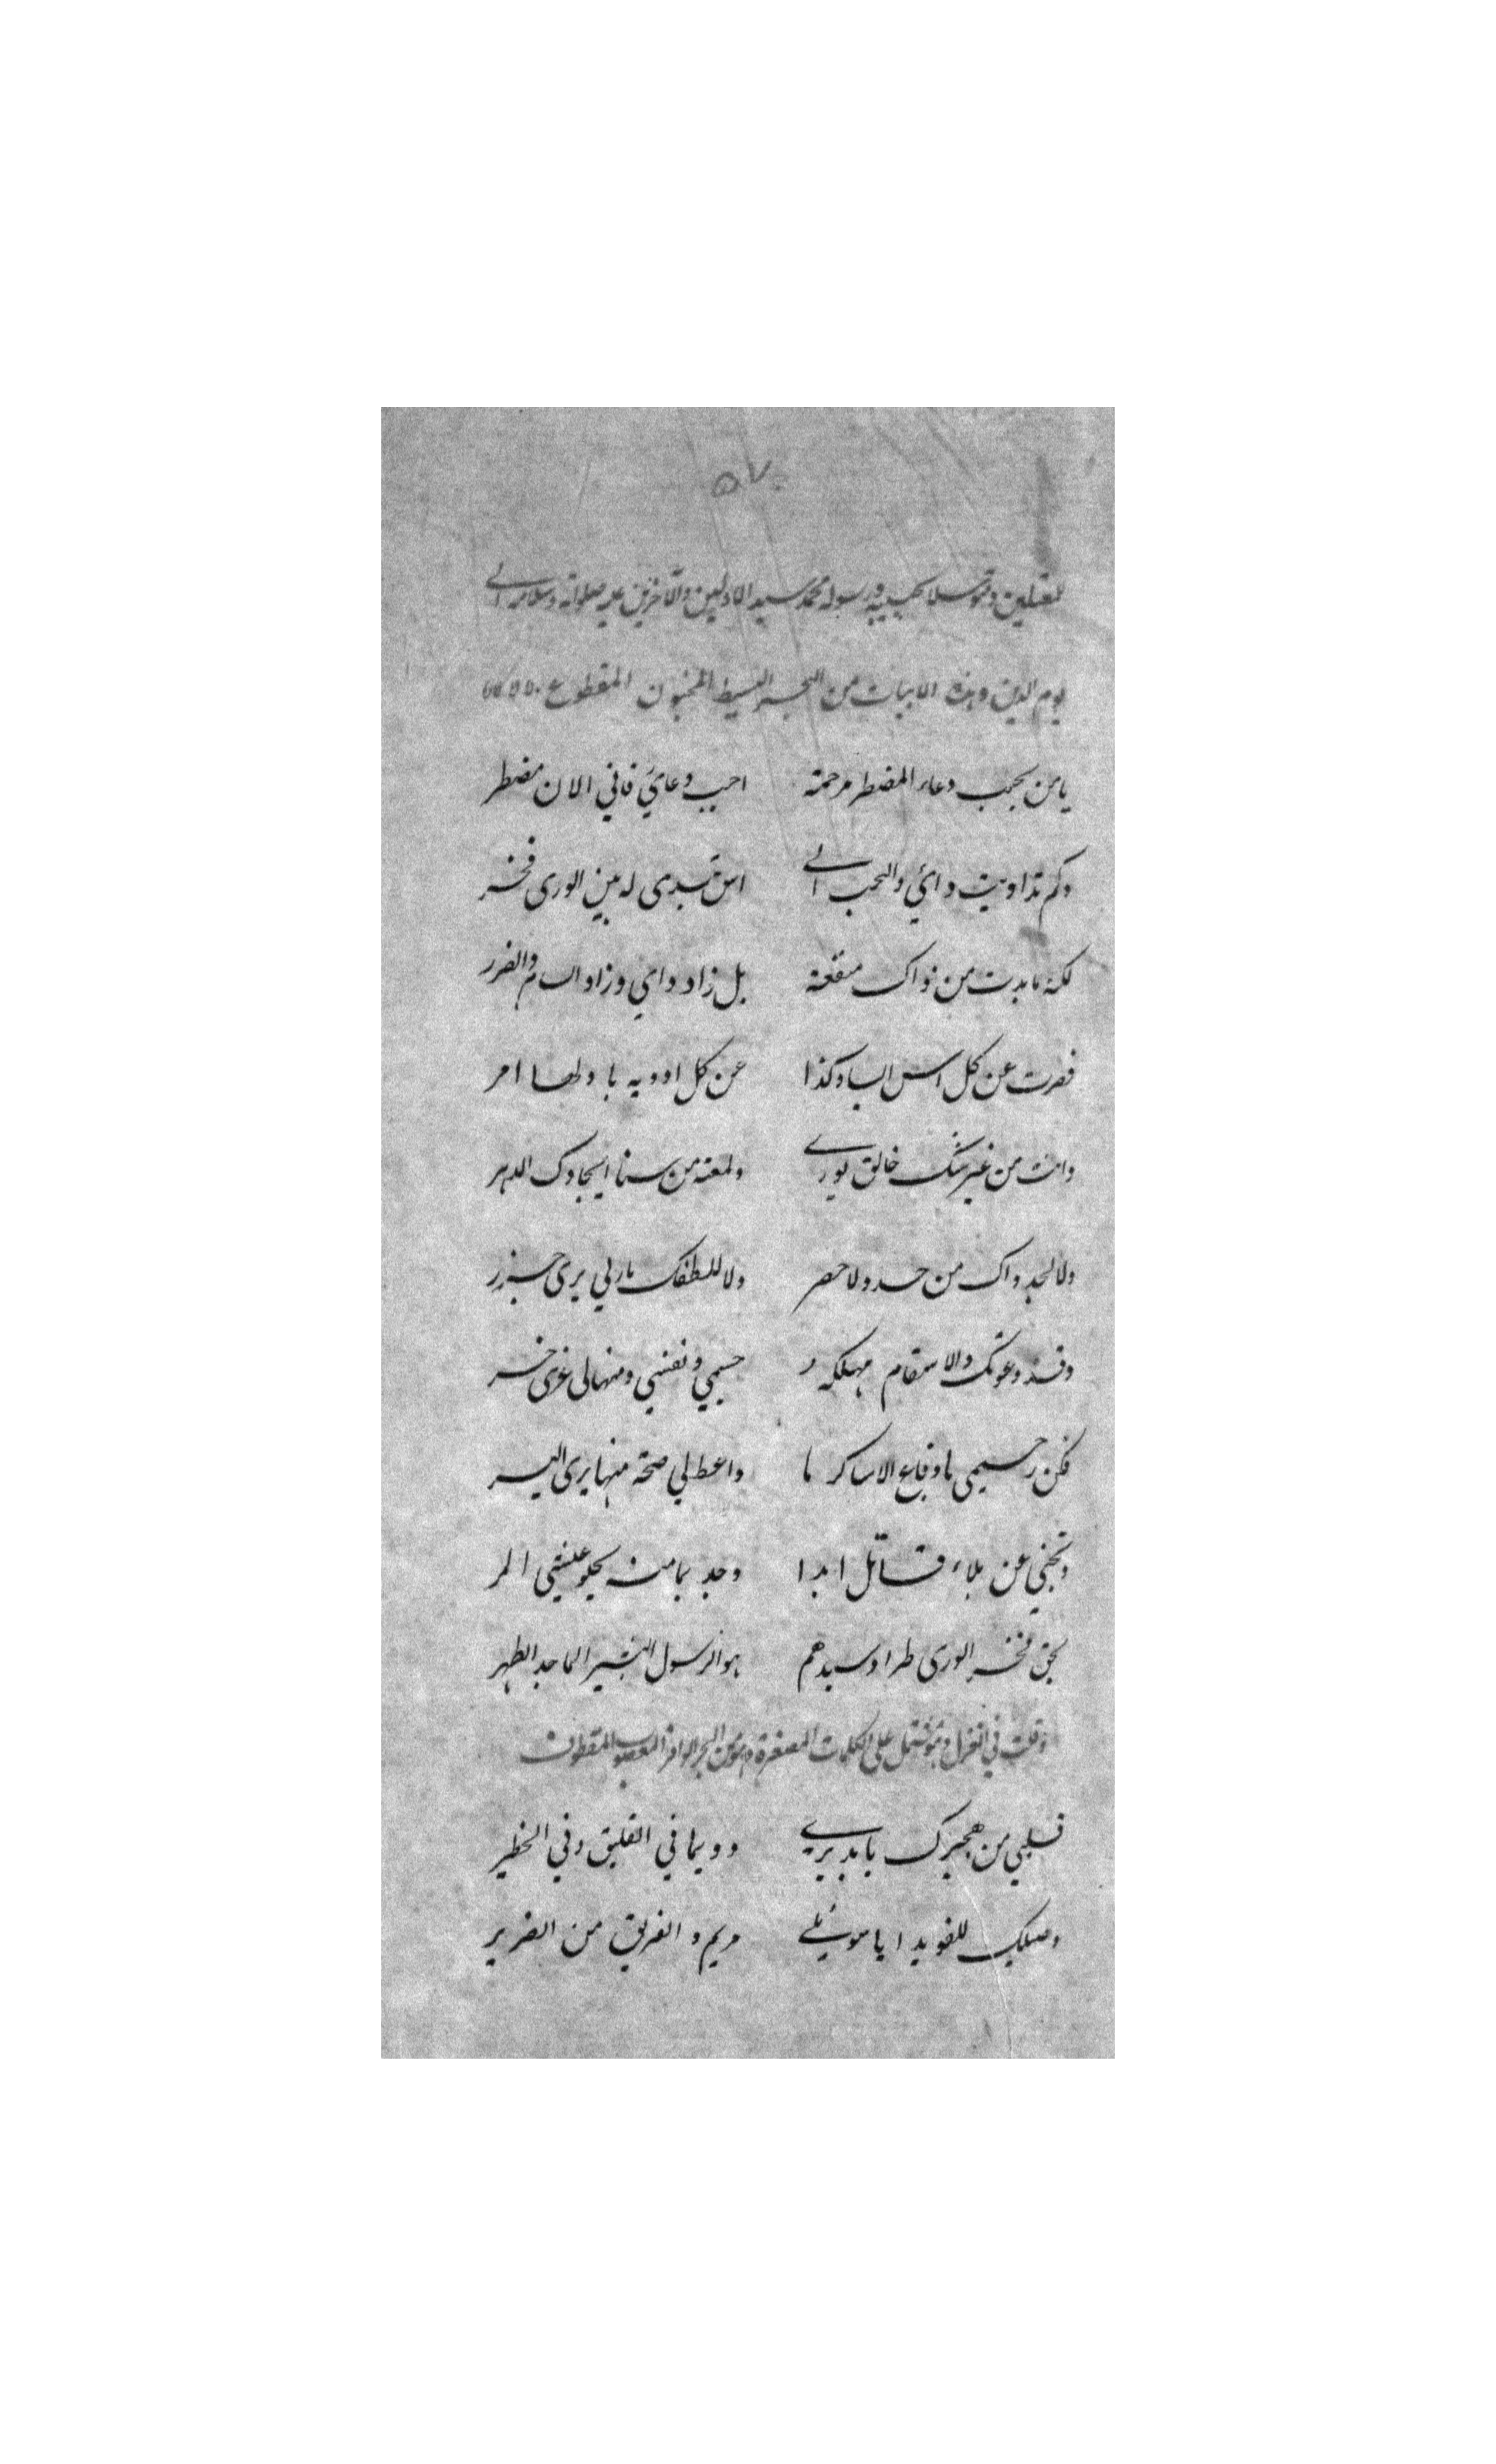 ٥٧
للمعتلين ومتوسلا بحبيبه ورسوله محمد سيد الاولين والآخرين عليه صلواته وسلامه الى
يوم الدين وهذه الابيات من البحر البسيط المخبون المقطوع
يا من يجيب دعاء المضطر مرحمة اجب دعائي فاني الان مضطر
وكم تداويت دائي والتجب الى اس تبدى له بين الورى فخر
لكنه ما بدت من ذواك منفعة بل زاد دائي وزاد السام والضرر
فصرت عن كل اس البا وكذا عن كل ادويه با ولها امر
وانت من غير شك خالق لورى ولمعة من سنا ايجادك الدهر
ولا لجدواك من حد ولا حصر ولا للطفك يا ربي يرى جزر
وقد دعوتك والاسقام مهلكه جسمي ونفسي ومنها لى غزى خسر
فكن رحيمى يا دفاع الاسا كرما واعط لي صحة منها يرى اليسر
ونجني عن بلاء قاتل ابدا وجد بما منه يحلو عيشي المر
بحق فخر الورى طرا وسيدهم هو الرسول البشير الماجد الطهر
وقلت في الغزل وهو مشتمل على الكلمات المصغرة وهو من البحر الوافر المعصوب المقطوف
قليبي من هجيرك يا بديرى دويما في القليق وفي الخطير
وصيلك للفويد ايا مويلى مريم و الفريق من الضرير